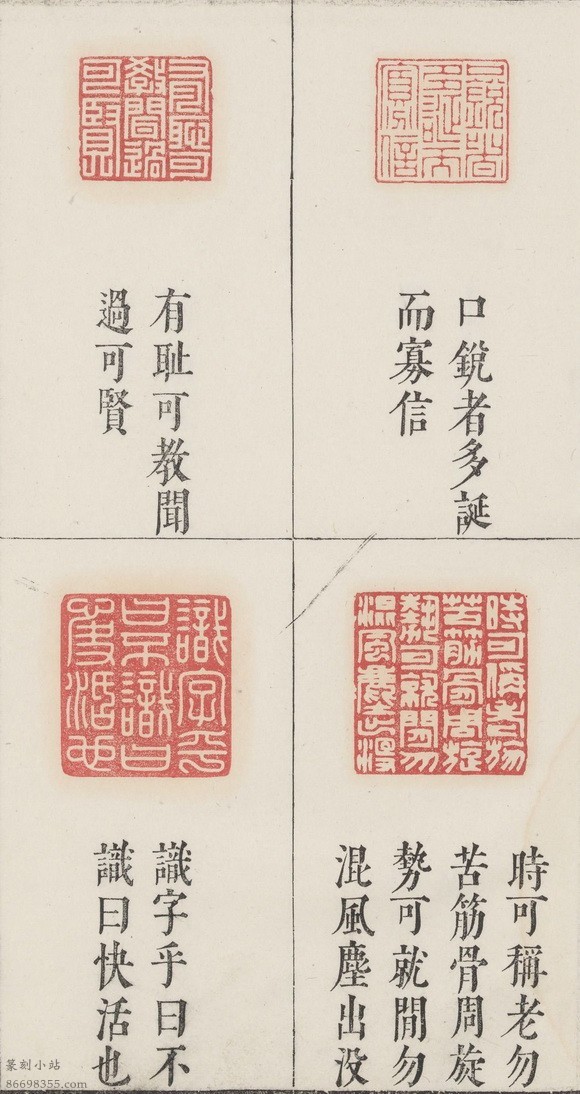 口銳者多誕
而寡信
有耻可教聞
過可賢
時可稱老勿
苦筋骨周旋
勢可就閒勿
混風塵出没
識字乎曰不
識曰快活也
篆刻小站
86698355.com